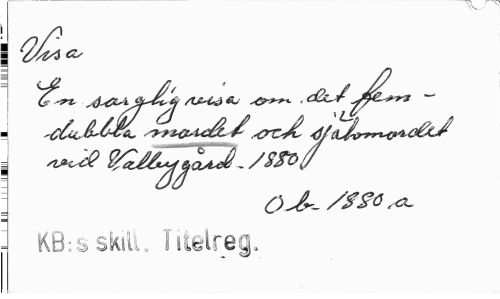 Visa
En sorglig visa om det fem-
dubbla mordet och självmordet
vid Valbygård. 1880
Ob. 1880.a
KB:s skill. Titelreg.